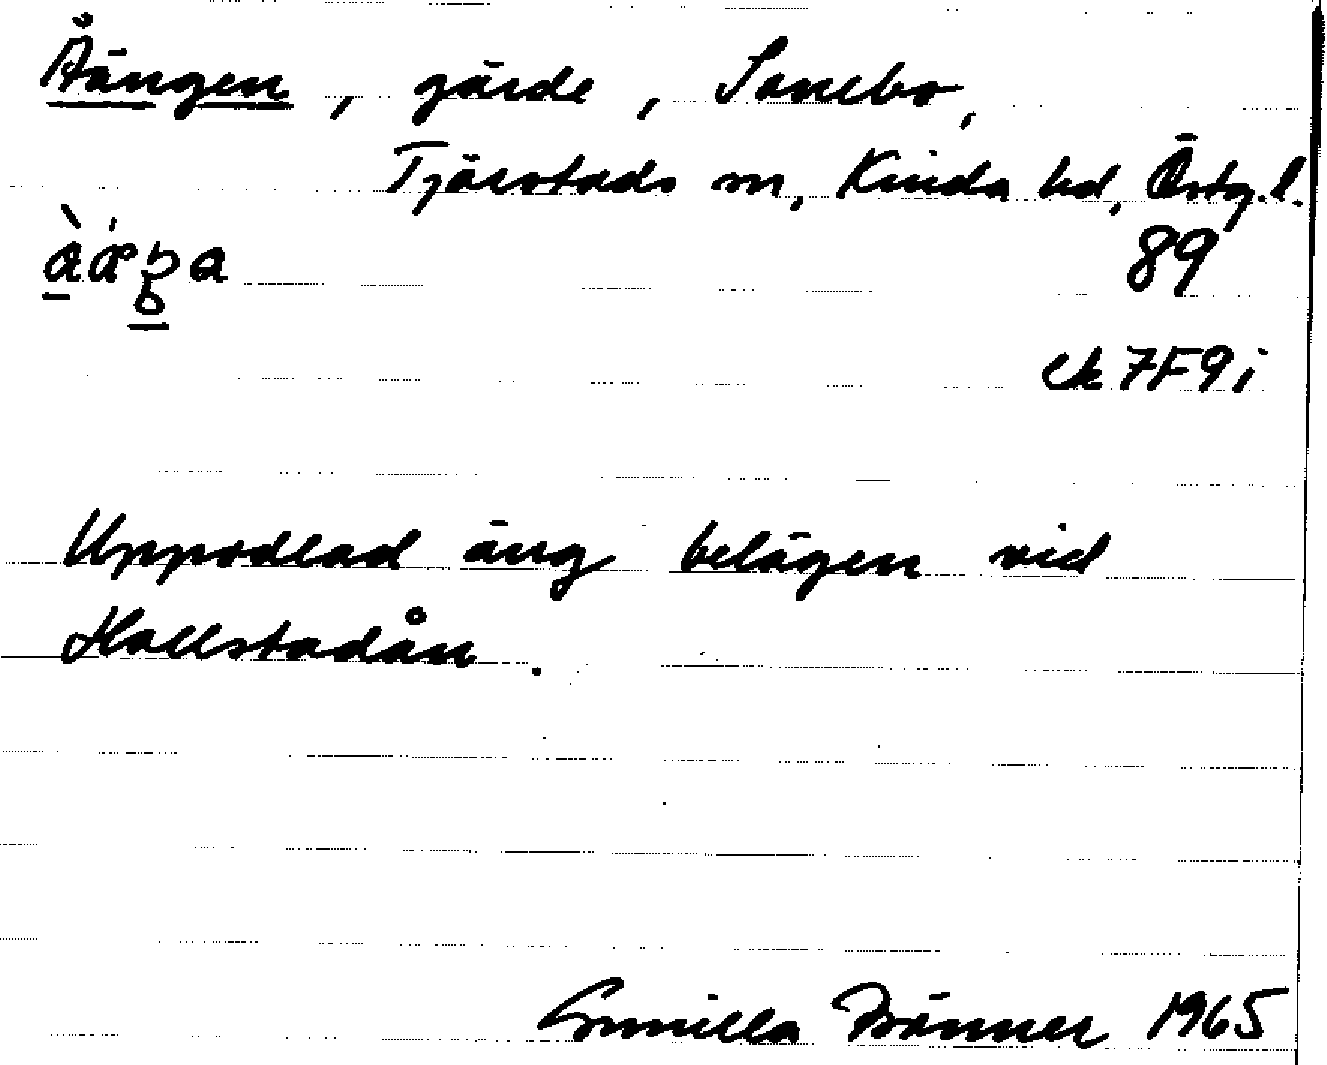 Åängen, gärde, Sonebo,
Tjärstads sn, Kinda hd, Östg.l.
89
ek 7F9i
Uppodlad äng belägen vid
Hallstadån.
Gunilla Bränner 1965